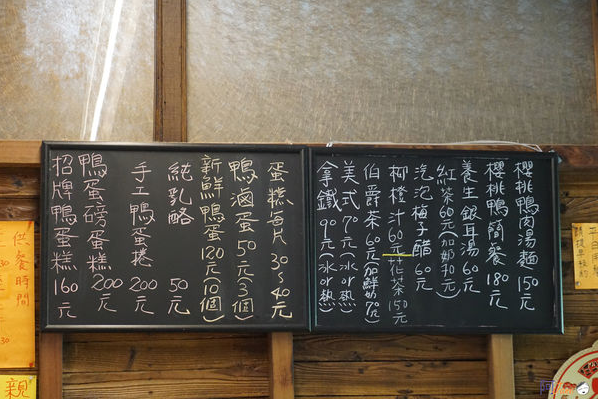 櫻桃鴨肉湯麵 150元
櫻桃鴨簡餐 180元
養生銀耳湯 60元
紅茶60元(加奶70元)
泡泡梅子醋 60元
柳橙汁 60元
花茶 150元
伯爵茶 60元(加鮮奶70元)
美式 70元(冰or熱)
拿鐵 90元(冰or熱)
蛋糕每片 30~40元
鴨滷蛋 50元(3個)
新鮮鴨蛋 120元(10個)
純乳酪 50元
手工鴨蛋捲 200元
鴨蛋磅蛋糕 200元
招牌鴨蛋糕 160元
供餐時間
親